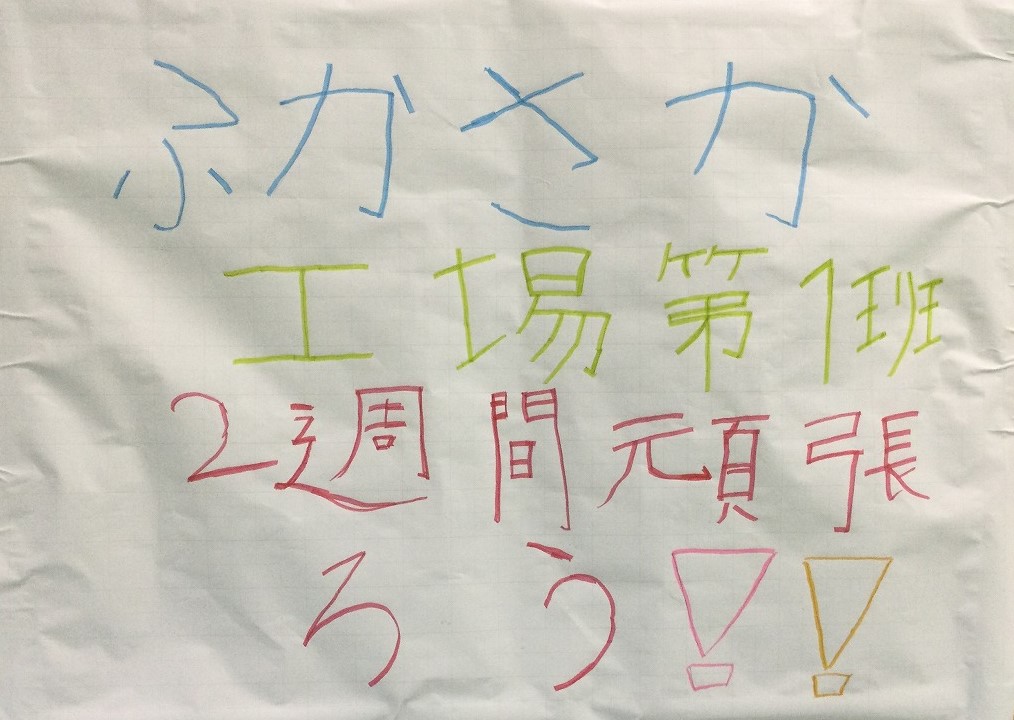 ふかさか
工場第1班
2週間頑張
ろう!!